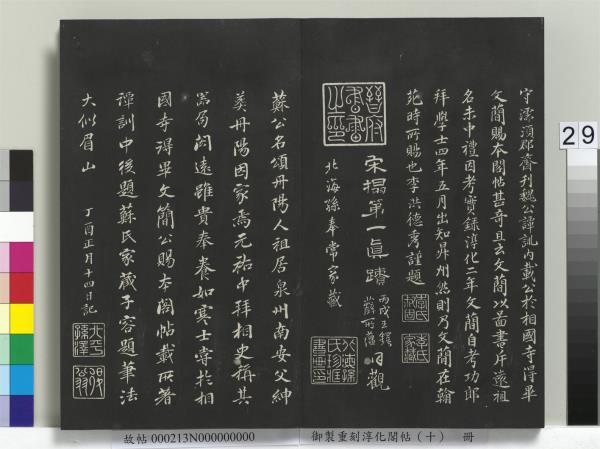 守濡須郡齋刊魏公譚訓內載公於相國寺得畢
文簡賜本閣帖甚奇且云文簡以圖書斥遠祖
名未中禮因考實錄淳化二年文簡自考功郎
拜學士四年五月出知昇州然則乃文簡在翰
苑時所賜也李洪德秀謹題
宋搨第一真蹟
北海孫奉常家藏
丙戌王鐸
薛所蘊同觀
蘇公名頌丹陽人祖居泉州南安父紳
葬丹陽因家焉元祐中拜相史稱其
器局閎遠雖貴奉養如寒士嘗於相
國寺得畢文簡公賜本閣帖載所著
譚訓中後題蘇氏家藏子容題筆法
大似眉山
丁酉正月十四日記
29
故帖 000213N000000000
御製重刻淳化閣帖（十） 冊